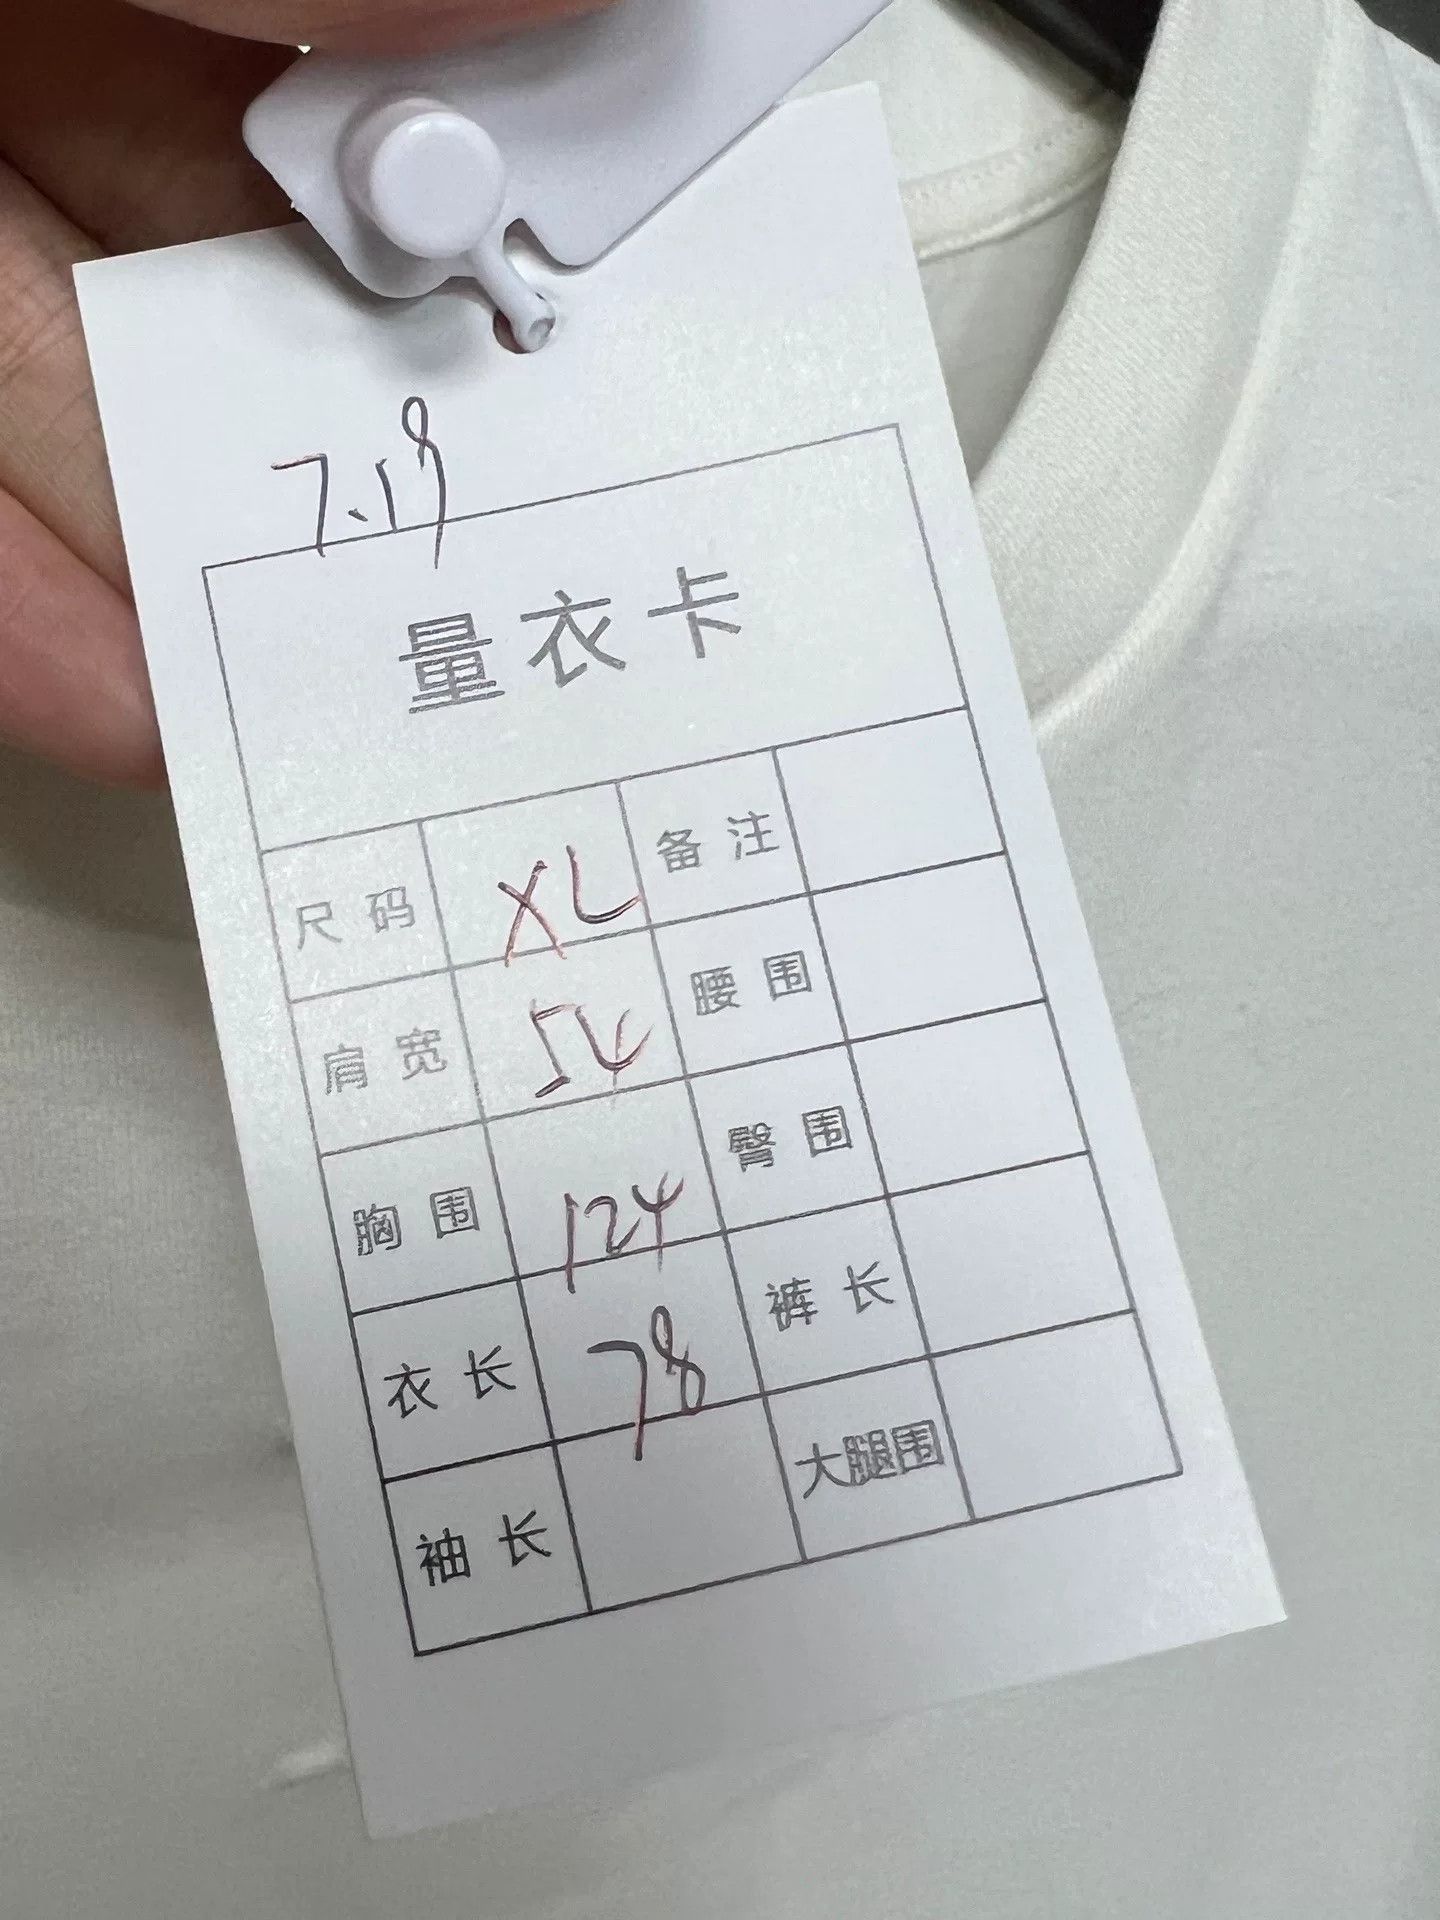 7.19
量衣卡
尺码 XL 备注
肩宽 54 腰围
胸围 124 臀围
衣长 78 裤长
袖长 大腿围